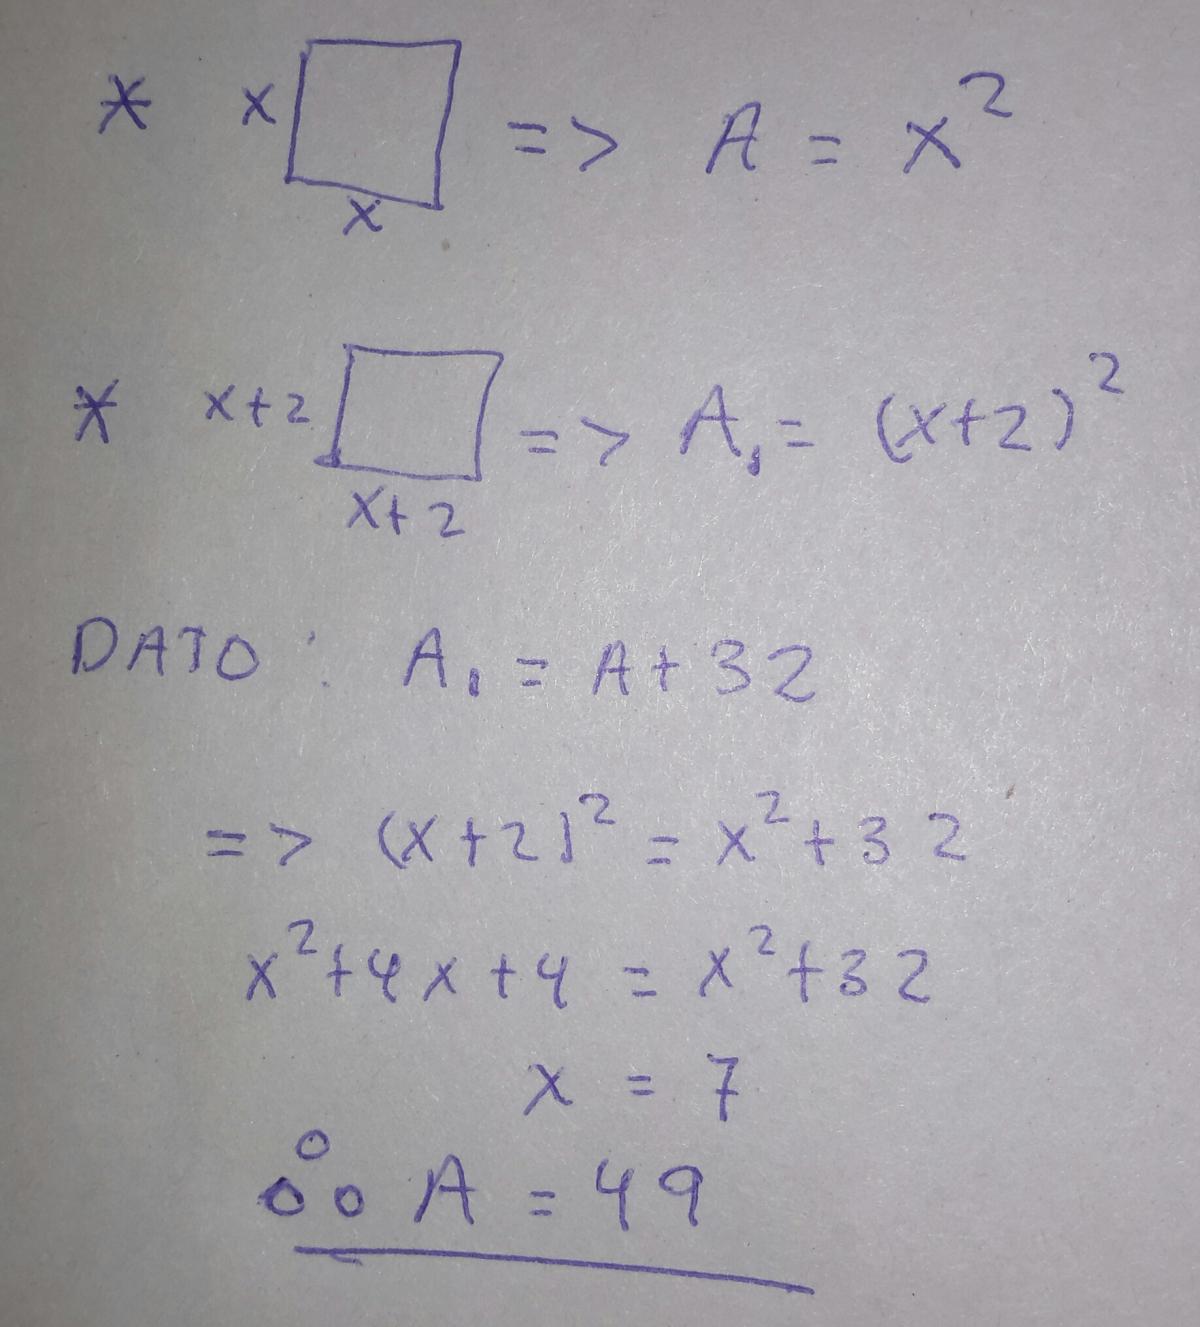 * x => A = x²
x
* x+2 => A₁ = (x+2)²
x+2
DATO : A₁ = A+32
=> (x+2)² = x²+32
x²+4x+4 = x²+32
x = 7
∴ A = 49